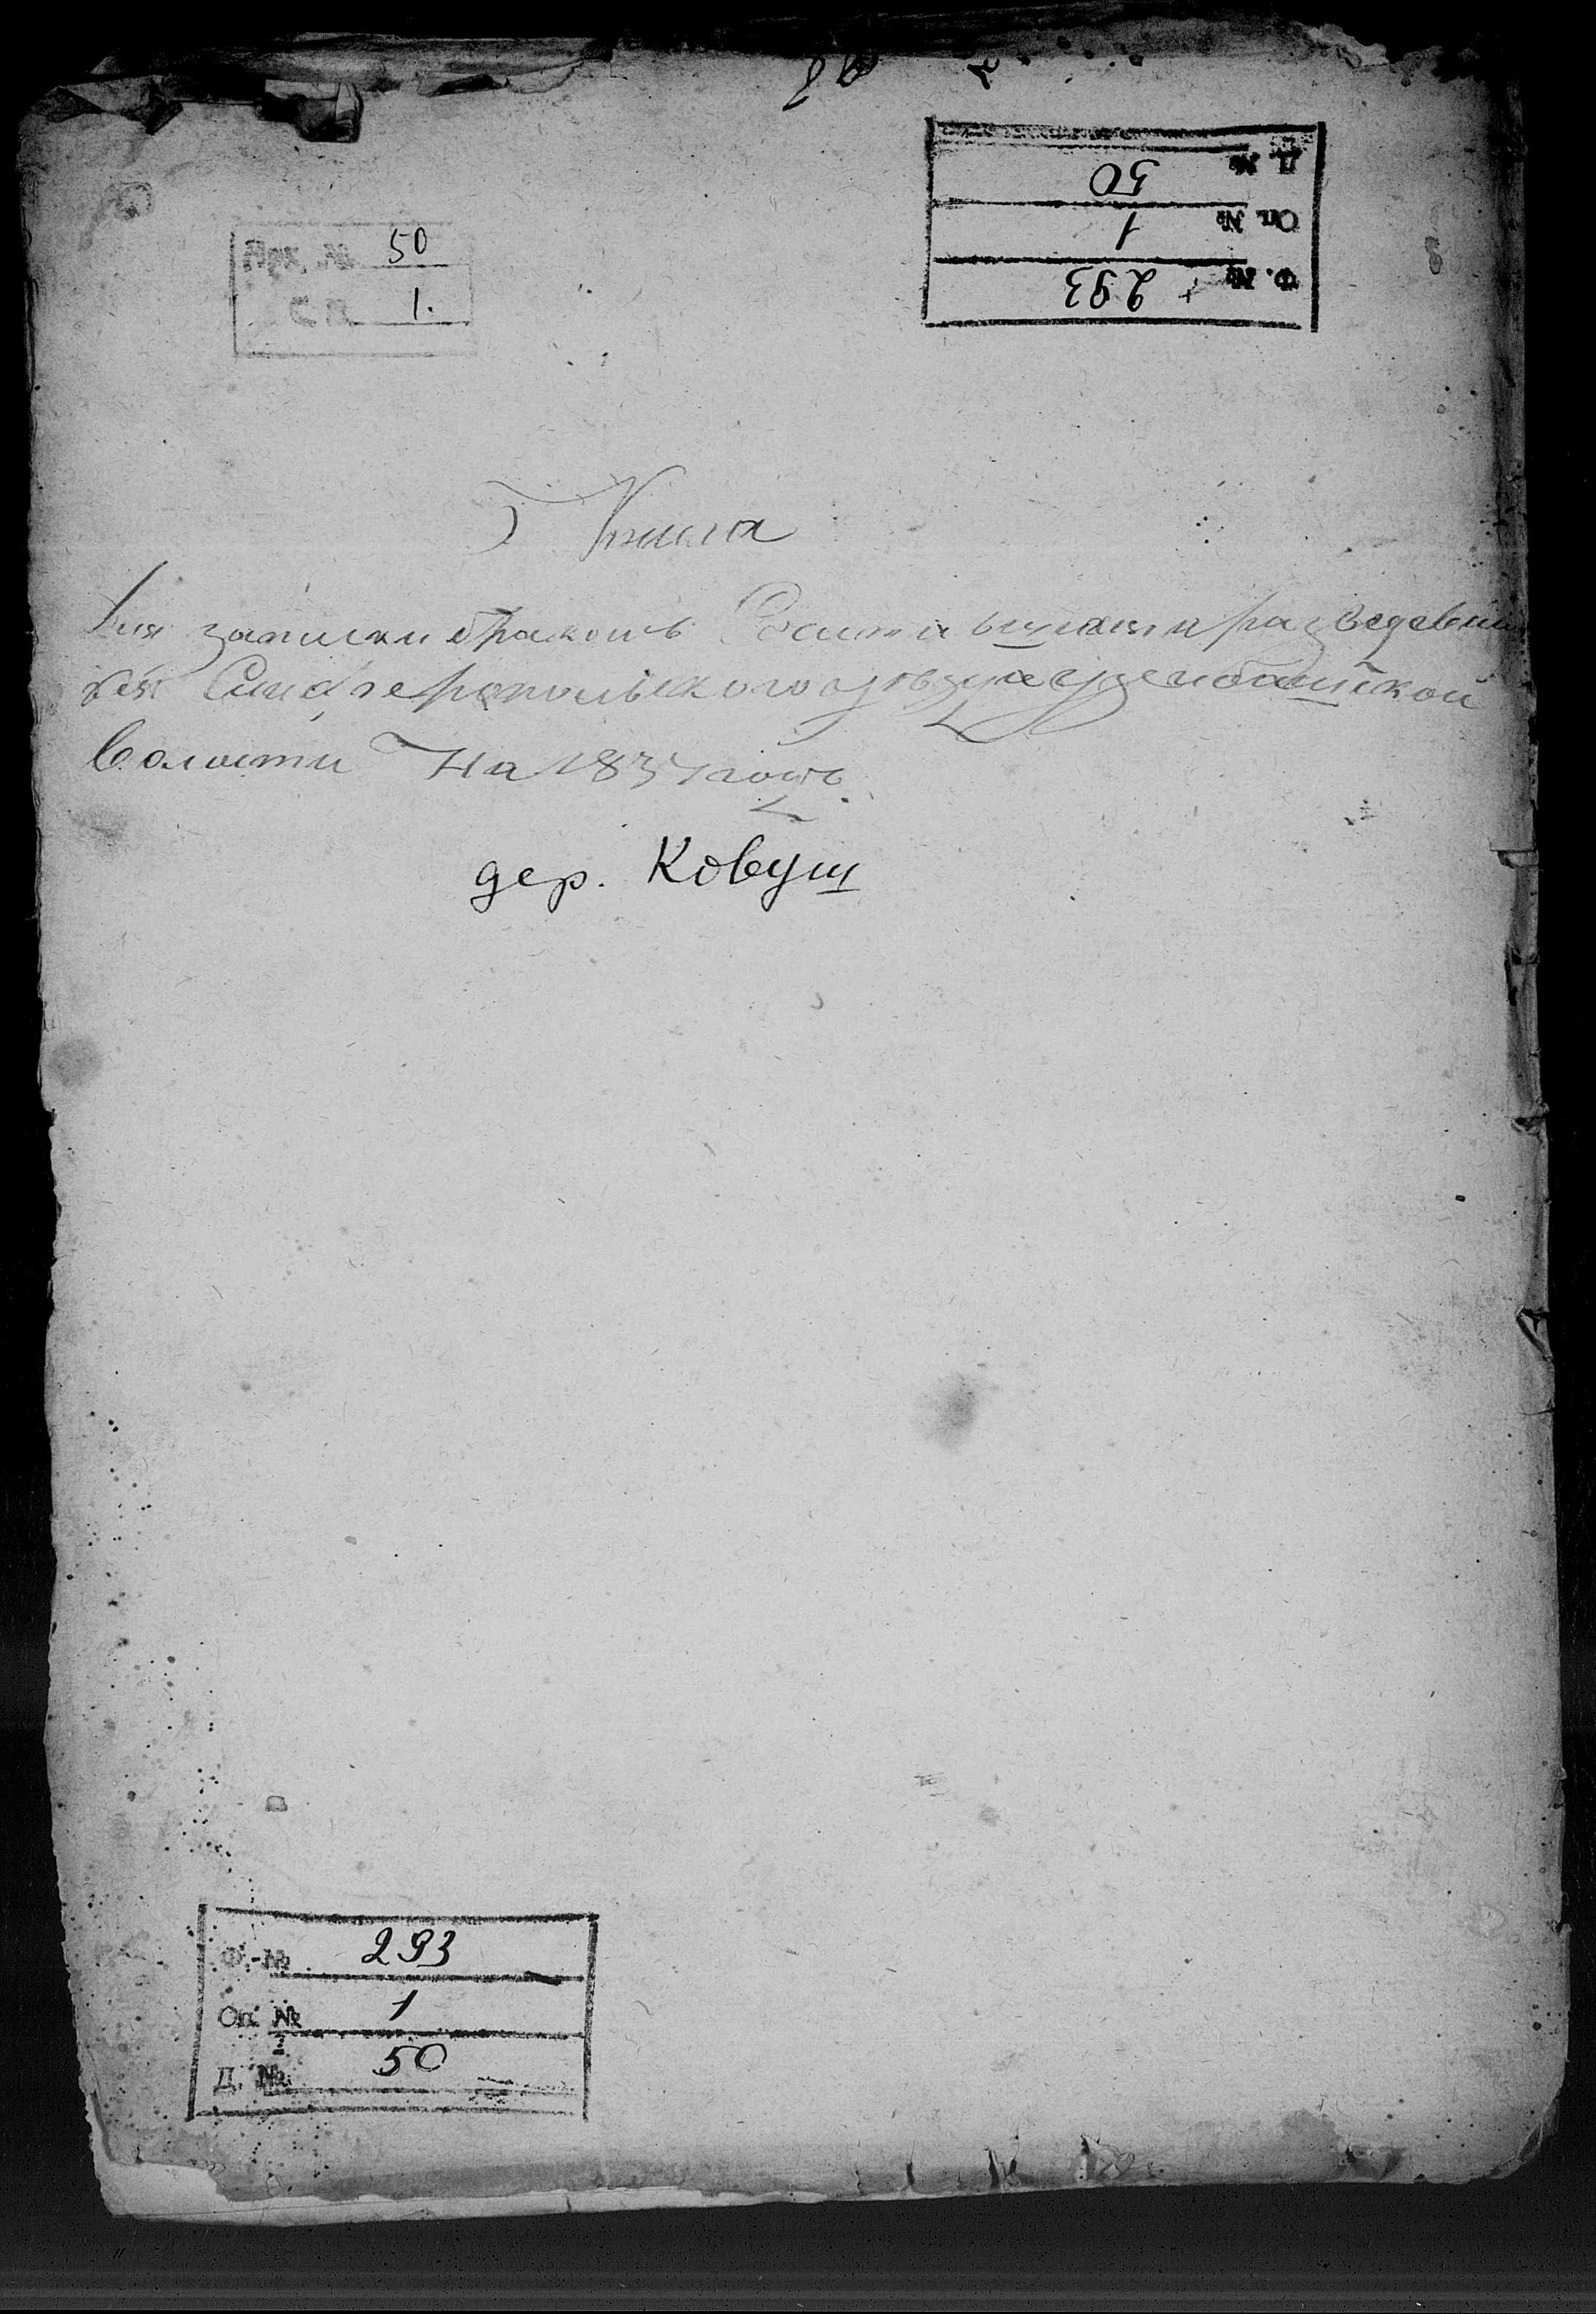 Д. № 50
Оп. № 1
Ф. № 293
Арх. № 50
1.
Книга
Для записки браковъ Сочитавшихся и разведевши
хся Симферопольскаго уезда узенбашской
Волости На 1837 годъ.
дер. Ковуш
Ф. № 293
Оп. № 1
Д. № 50